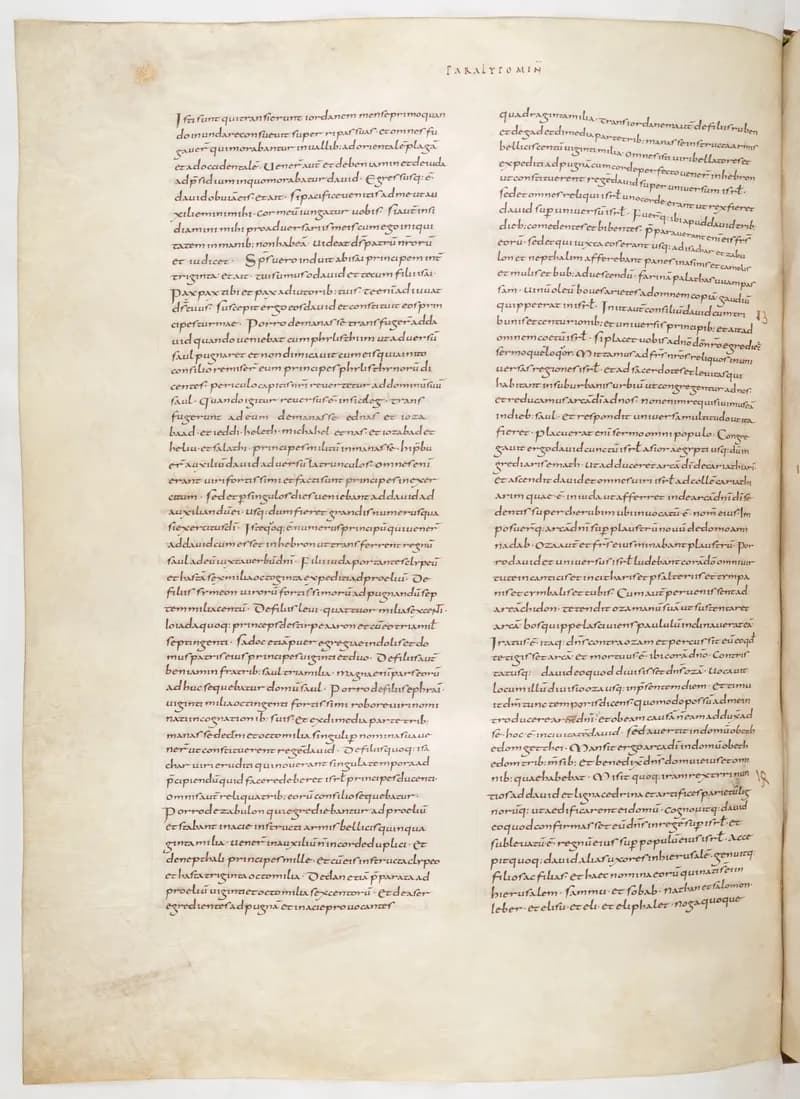 PARALYPOMIN̄
Isti sunt qui transierunt iordanem mense primo quan
do inundare consueuit super ripas suas · et omnes fu
gauer̄ qui morabantur in uallib: ad orientalē plagā
et ad occidentalē · Uener̄ aut̄ et de beniamin et de iuda
ad p̄sidium in quo morabatur dauid · Egressusq: ē
dauid obuiā eis et ait · Si pacifice uenistis ad me ut au
xiliemini mihi · cor meū iungatur uobis · si aut̄ insi
diamini mihi pro aduersariis meis cum ego iniqui
tatem in manib: non habeā · uideat d̄s patrū nr̄orū
et iudicet · Sp̄s uero induit abisai principem int̄
triginta et ait · tui sumus o dauid et tecum fili isai ·
Pax pax tibi et pax adiutorib: tuis · te eni adiuuat
d̄s tuus · suscepit ergo eos dauid et constituit eos prin
cipes turmae · Porro de manasse transfuger̄ ad da
uid quando ueniebat cum philistim ut aduersū
saul pugnaret et non dimicauit cum eis quia inito
consilio remiser̄ eum principes philisthinorū di
centes · periculo capitis nr̄i reuertetur ad dominū suū
saul · Quando igitur reuersus ē in siceleg · trans
fugerunt ad eum de manasse · ednas et ioza
baad · et ieddihel et michahel et nas et iozabad et
heliu et salathi · principes militū in manasse · hi p̄bu
er̄ auxiliū dauid aduersū latrunculos · omnes eni
erant uiri fortissimi et facti sunt principes in exer
citum · sed et p̄ singulos dies ueniebant ad dauid ad
auxiliandū ei · usq: dum fieret grandis numerus qua
si exercitus d̄i · Iste quoq: ē numerus principū qui uener̄
ad dauid cum esset in hebron ut transferrent regnū
saul ad eū iuxta uerbū dn̄i · Filii iuda portantes clypeū
et hastā sex milia octoginta expediti ad proeliū · De
filiis symeon uirorū fortissimorū ad pugnandū sep
tem milia centū · De filiis leui · quattuor milia sexcenti ·
Ioiada quoq: princeps de stirpe aaron et cū eo tria mil̄
septingenti · sadoc etiā puer egregiae indolis et do
mus patris eius principes uiginti et duo · De filiis aut̄
beniamin fratrib: saul tria milia · magna eni pars eorū
adhuc sequebatur domū saul · Porro de filiis ephraī ·
uiginti milia octingenti fortissimi robore uiri nomi
nati in cognationib: suis · Et ex dimedia parte trib:
manasse decem et octo milia singuli p̄ nomina sua ue
ner̄ ut constituerent regē dauid · De filiis quoq: isa
char uiri eruditi qui nouerant singula tempora ad
p̄cipiendū quid facere deberet isrl̄ principes ducenti ·
omnis aut̄ reliqua trib: eorū consilio sequebatur ·
Porro de zabulon qui egrediebantur ad proeliū
et stabant in acie instructi armis bellicis quinqua
ginta milia · uener̄ in auxiliū n̄ in corde duplici · Et
de nepthali principes mille · et cū eis instructa clypeo
et hasta triginta octo milia · De dan etiā p̄parata ad
proeliū uiginti et octo milia sexcentorū · Et de aser
egredientes ad pugnā et in acie prouocantes
quadraginta milia · trans iordanem aut̄ de filiis ruben
et de gad et dimedia parte trib: manasse instructa armis
bellicis centū uiginti milia · omnes isti uiri bellatores et
expediti ad pugnā cum corde perfecto uener̄ in hebron
ut constituerent regē dauid super uniuersum isrl̄ ·
sed et omnes reliqui isrl̄ uno corde erant ut rex fieret
dauid sup uniuersū isrl̄ · Fuer̄q: ibi apud dauid trib:
dieb: comedentes et bibentes · p̄parauerant eni eis fr̄s
eorū · sed et qui iuxta eos erant usq: ad isachar et zabu
lon et nepthalim afferebant panes in asinis et camelis
et mulis et bub: ad uescendū · farinā palathas uuam pas
sam · uinū oleū boues arietes ad omnem copiā · gaudiū
quippe erat in isrl̄ · Iniit aut̄ consiliū dauid cum tri
bunis et centurionib: et uniuersis principib: et ait ad
omnem coetū isrl̄ · si placet uobis et a dn̄o dō nr̄o egredietur
sermo quē loquor · Mittamus ad fr̄s nr̄os reliquos in uni
uersas regiones isrl̄ · et ad sacerdotes et leuitas qui
habitant in suburbanis urbiū ut congregentur ad nos ·
et reducamus arcā d̄i ad nos · non eni requisiuimus eā
in dieb: saul · et respondit uniuersa multitudo ut ita
fieret · placuerat eni sermo omni populo · Congre
gauit ergo dauid cunctū isrl̄ a sior aegypti usq: dum
ingrediaris emath · ut adduceret arcā d̄i de cariathiari
et ascendit dauid et omnes uir isrl̄ ad collē cariathi
arim quae ē in iuda ut afferret inde arcā dn̄i d̄i se
dentis super cherubim ubi inuocatū ē nom̄ eius · Im
posuer̄q: arcā d̄i sup plaustrū nouū de domo ami
nadab · Oza aut̄ et fr̄s eius minabant plaustrū · Por
ro dauid et uniuersus isrl̄ ludebant corā dō omni uir
tute in canticis et in citharis et psalteriis et tympa
nis et cymbalis et tubis · Cum aut̄ peruenissent ad
areā chidon · tetendit oza manū suā ut sustentaret
arcā · bos quippe lasciuiens paululū inclinauerat eā ·
Iratus ē itaq: dn̄s contra ozam et percussit eū eo qd̄
tetigisset arcā · et mortuus ē ibi corā dn̄o · Contris
tatusq: dauid eo quod diuisisset dn̄s ozā · Uocauit
locum illū diuisio oza usq: in p̄sentem diem · Et timu
it dn̄m tunc temporis dicens · quomodo possū ad me in
troducere arcā d̄i · et ob eam causā n̄ eam adduxit ad
se · hoc ē in ciuitatē dauid · sed auertit in domū obed
edom gethei · Mansit ergo arca d̄i in domū obed
edom trib: m̄sib: et benedixit dn̄s domui eius et om
nib: quae habebat · Misit quoq: iram rex tyri nun
tios ad dauid et ligna cedrina et artifices parietū lig
norūq: ut aedificarent ei domū · Cognouitq: dauid
eo quod confirmasset eū dn̄s in regē sup isrl̄ · et
subleuatū ē regnū eius sup populū eius isrl̄ · Acce
pit quoq: dauid alias uxores in hierusalē · genuitq:
filios ac filias · et haec nomina eorū qui nati sr̄ in
hierusalem · sammu et sobab · nathan et salomon ·
Ieber · et elisu · et eli · et eliphalet · noga quoque